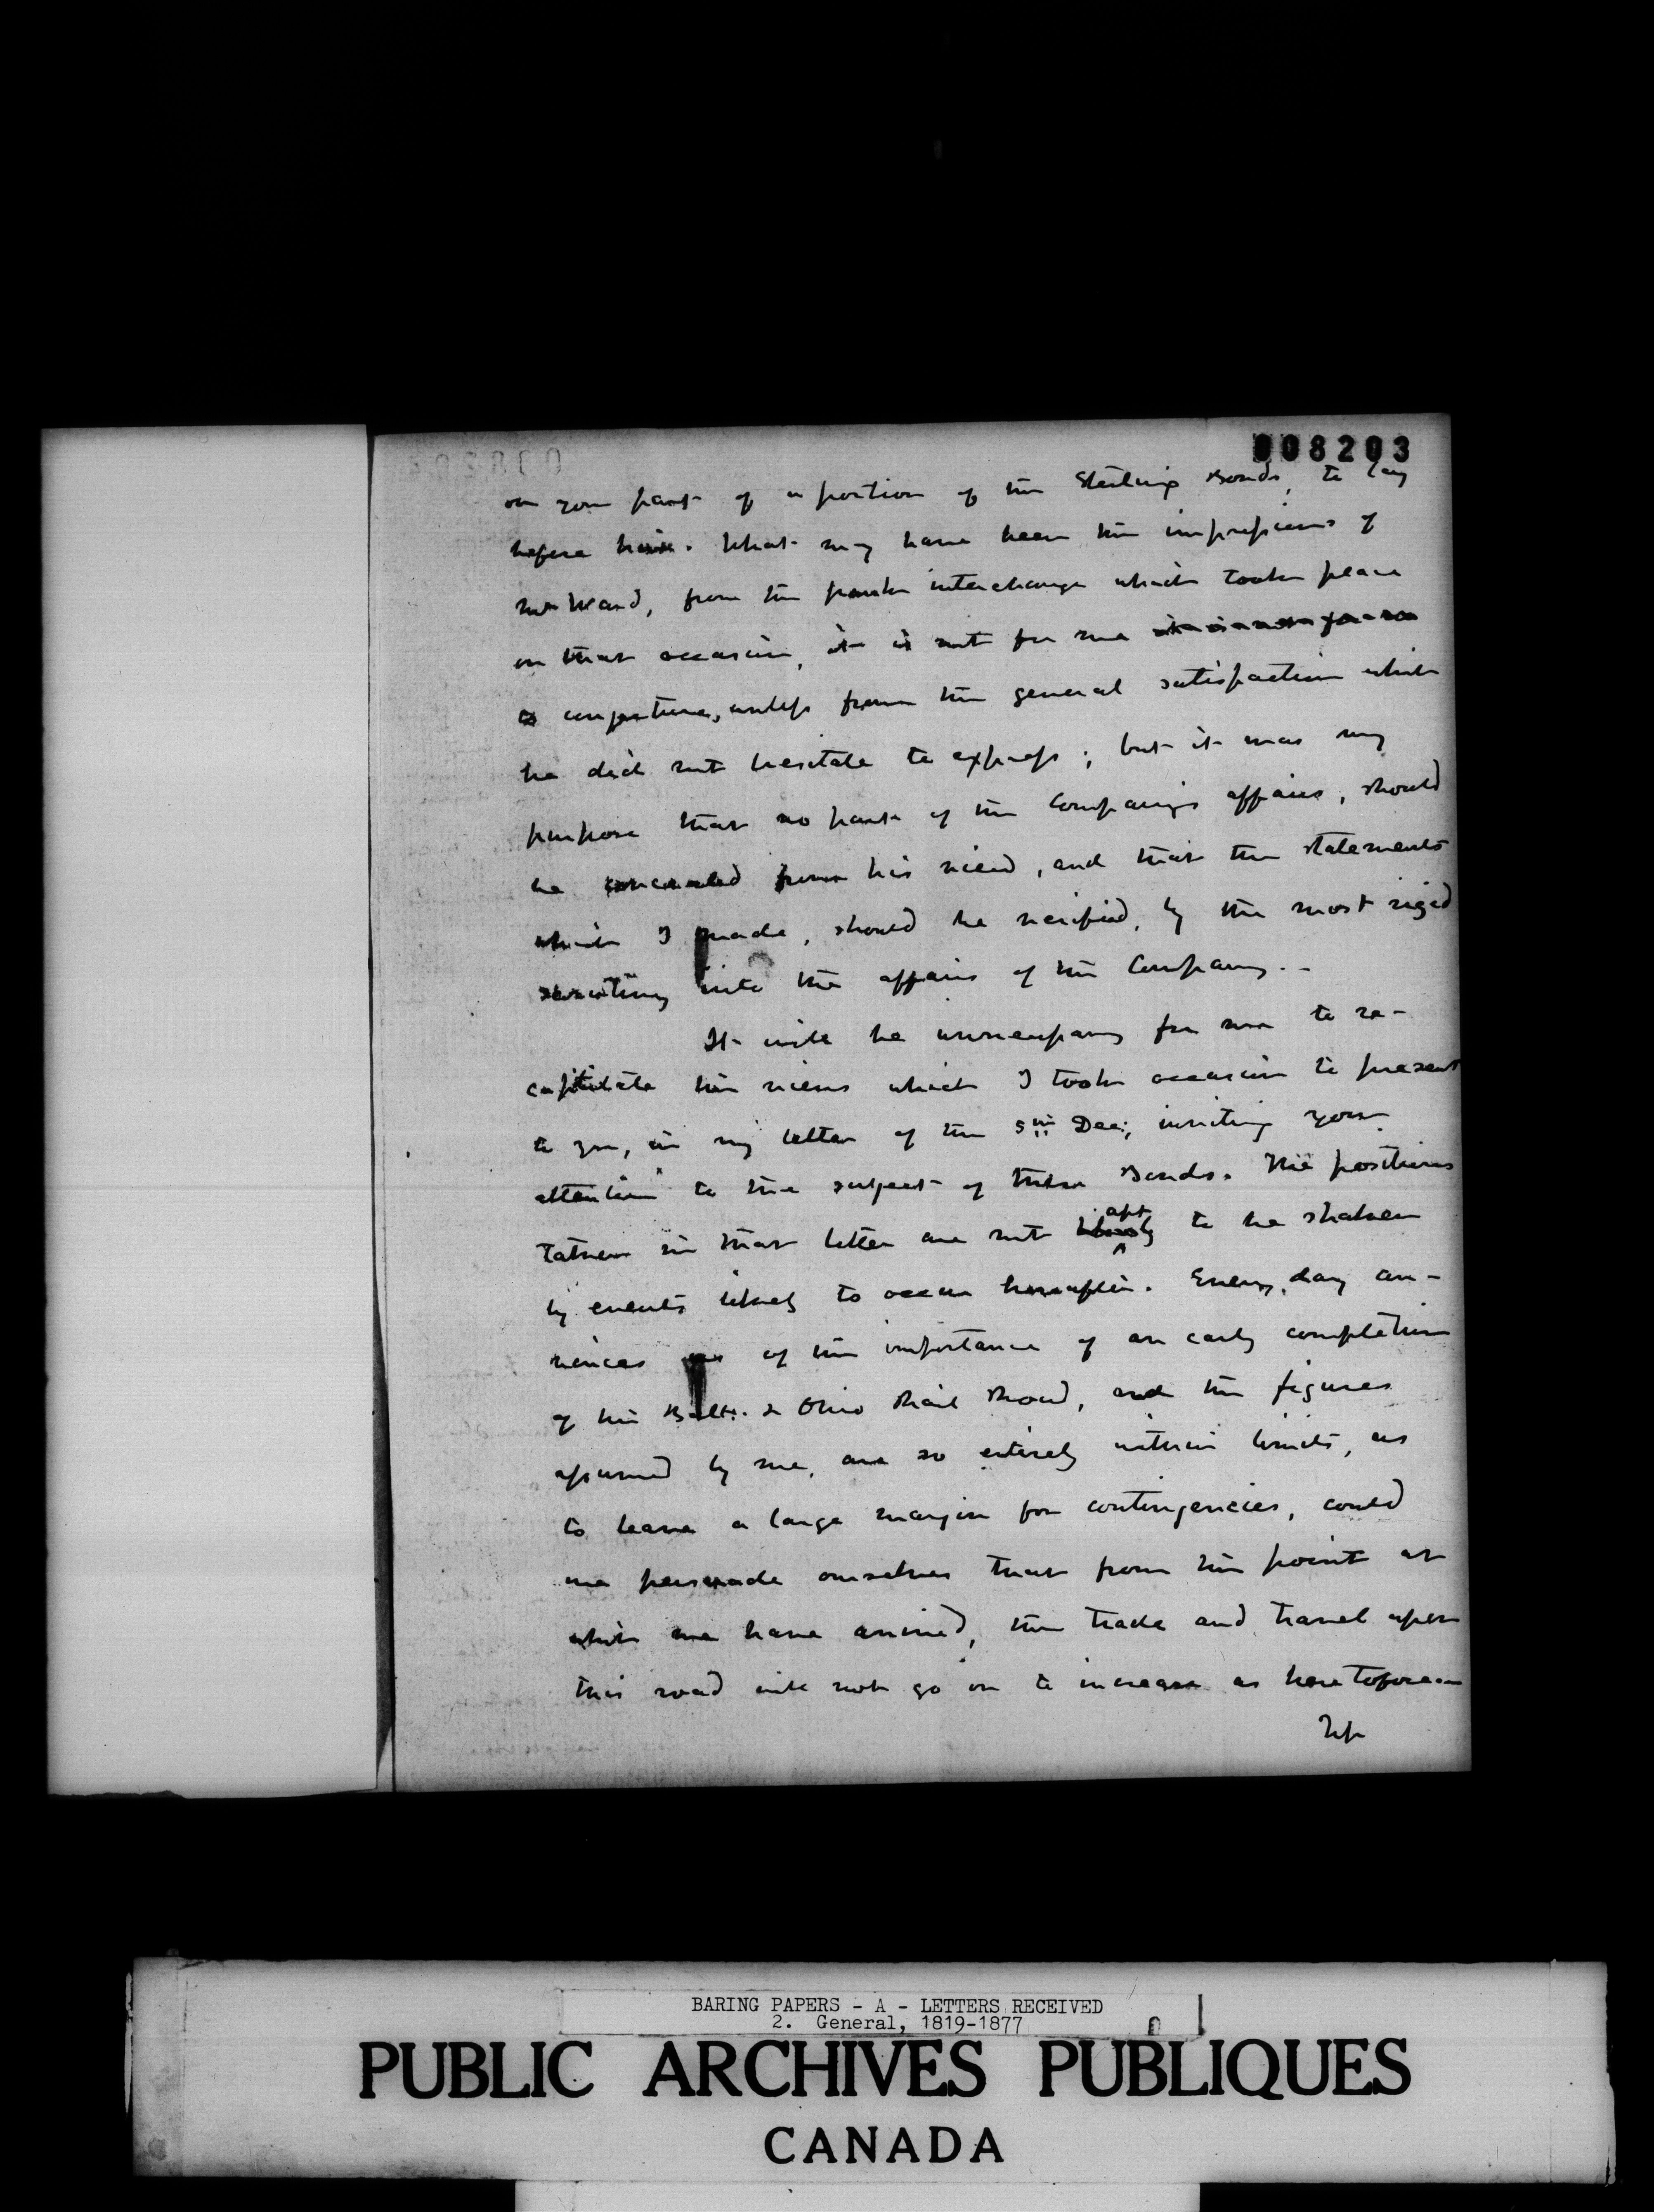 008203
on your part of a portion of the Sterling Bonds, to lay
before him. What may have been the impressions of
Mr Ward, from the frank interchange which took place
on that occasion, it is not for me
to conjecture, unless from the general satisfaction which
he did not hesitate to express; but it was my
purpose that no part of the Company's affairs, should
be concealed from his view, and that the statements
which I made, should be verified, by the most rigid
scrutiny into the affairs of the Company.-
It will be unnecessary for me to re-
capitulate the views which I took occasion to present
to you, in my letter of the 5th Dec; inviting your
attention to the subject of these Bonds. The positions
taken in that letter are not apt to be shaken
by events likely to occur hereafter. Every day con-
vinces us of the importance of an early completion
of the Balto. & Ohio Rail Road, and the figures
assumed by me, are so entirely within limits, as
to leave a large margin for contingencies, could
we persuade ourselves that from the point at
which we have arrived, the trade and travel upon
this road will not go on to increase as heretofore.-
BARING PAPERS - A - LETTERS RECEIVED
2. General, 1819-1877
PUBLIC ARCHIVES PUBLIQUES
CANADA